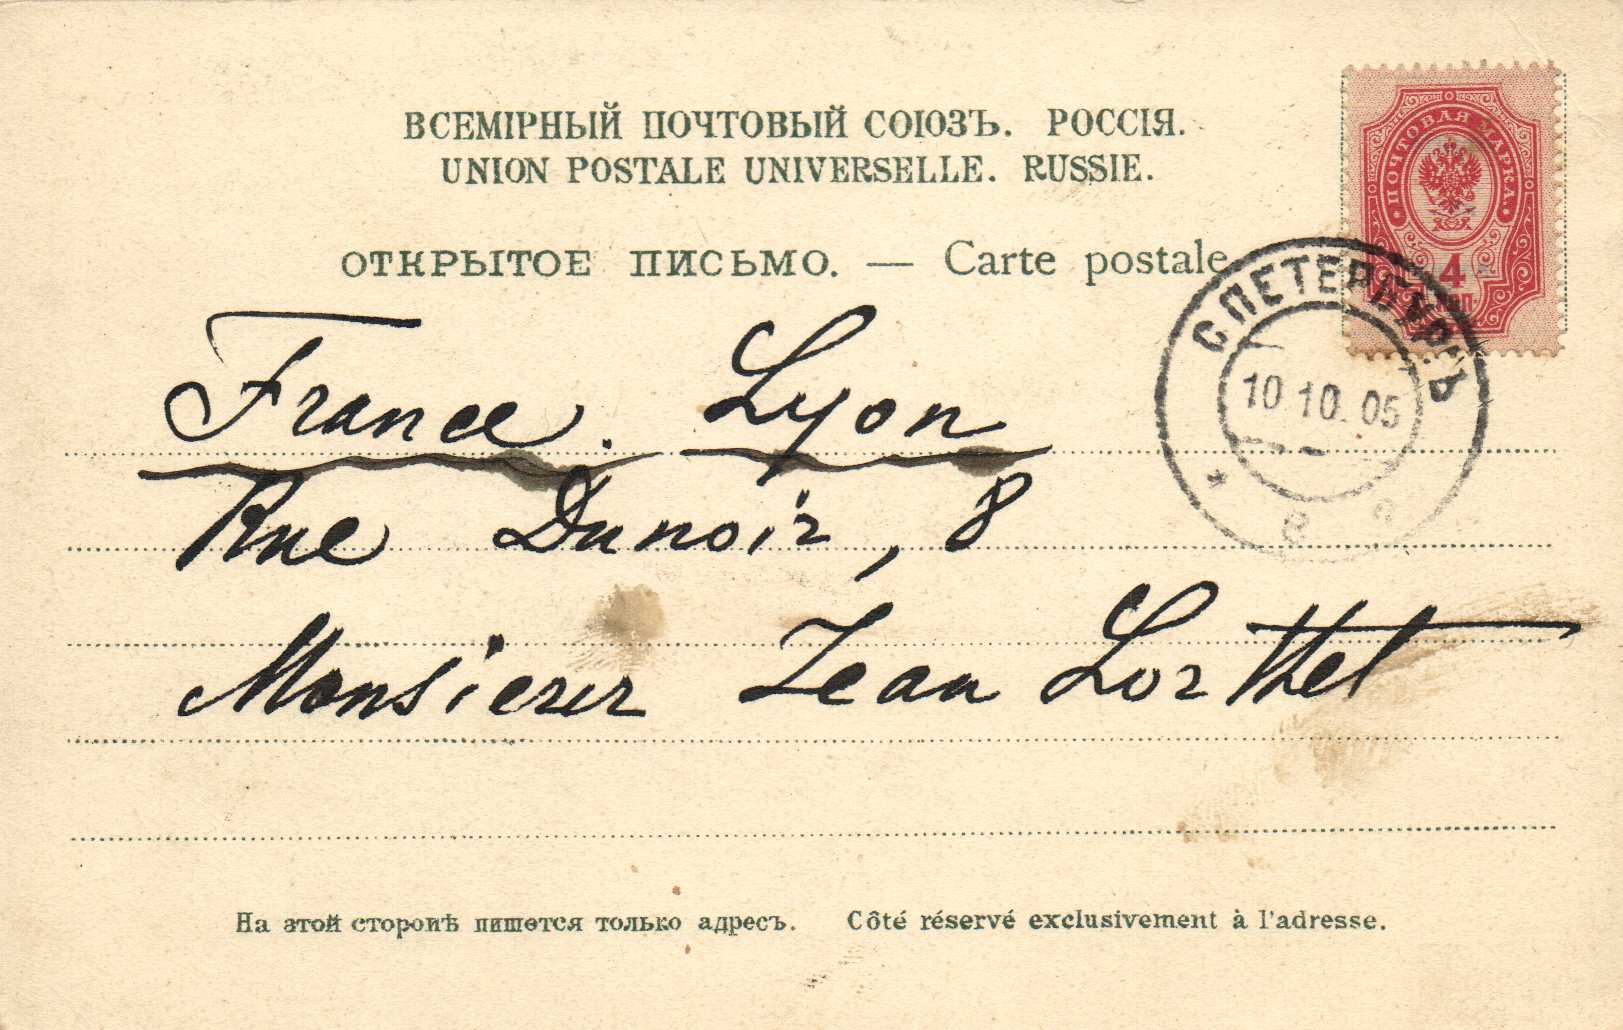 ВСЕМІРНЫЙ ПОЧТОВЫЙ СОЮЗЪ. РОССІЯ.
UNION POSTALE UNIVERSELLE. RUSSIE.
ПОЧТОВАЯ МАРКА
4
ОТКРЫТОЕ ПИСЬМО. — Carte postale
С ПЕТЕРБУРГЪ
10 10. 05
France. Lyon
Rue Dunoir, 8
Monsieur Jean Lorthet
На этой сторонѣ пишется только адресъ. Côté réservé exclusivement à l'adresse.